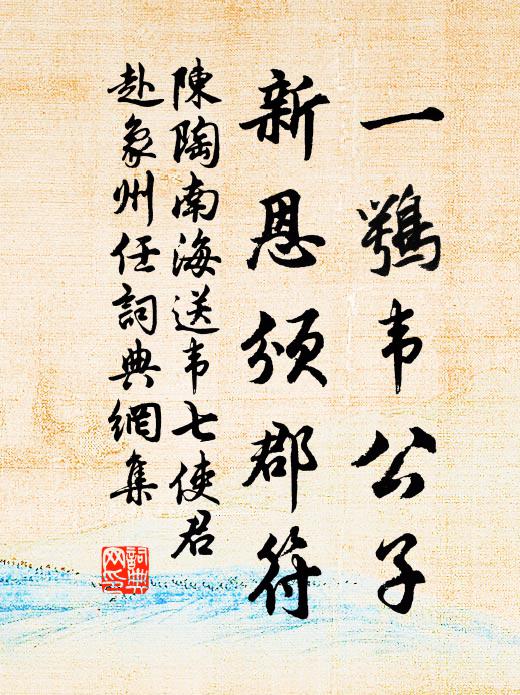 一鶚韦公子
新恩颁郡符
陳陶南海送韦七使君
赴象州任詞典網集